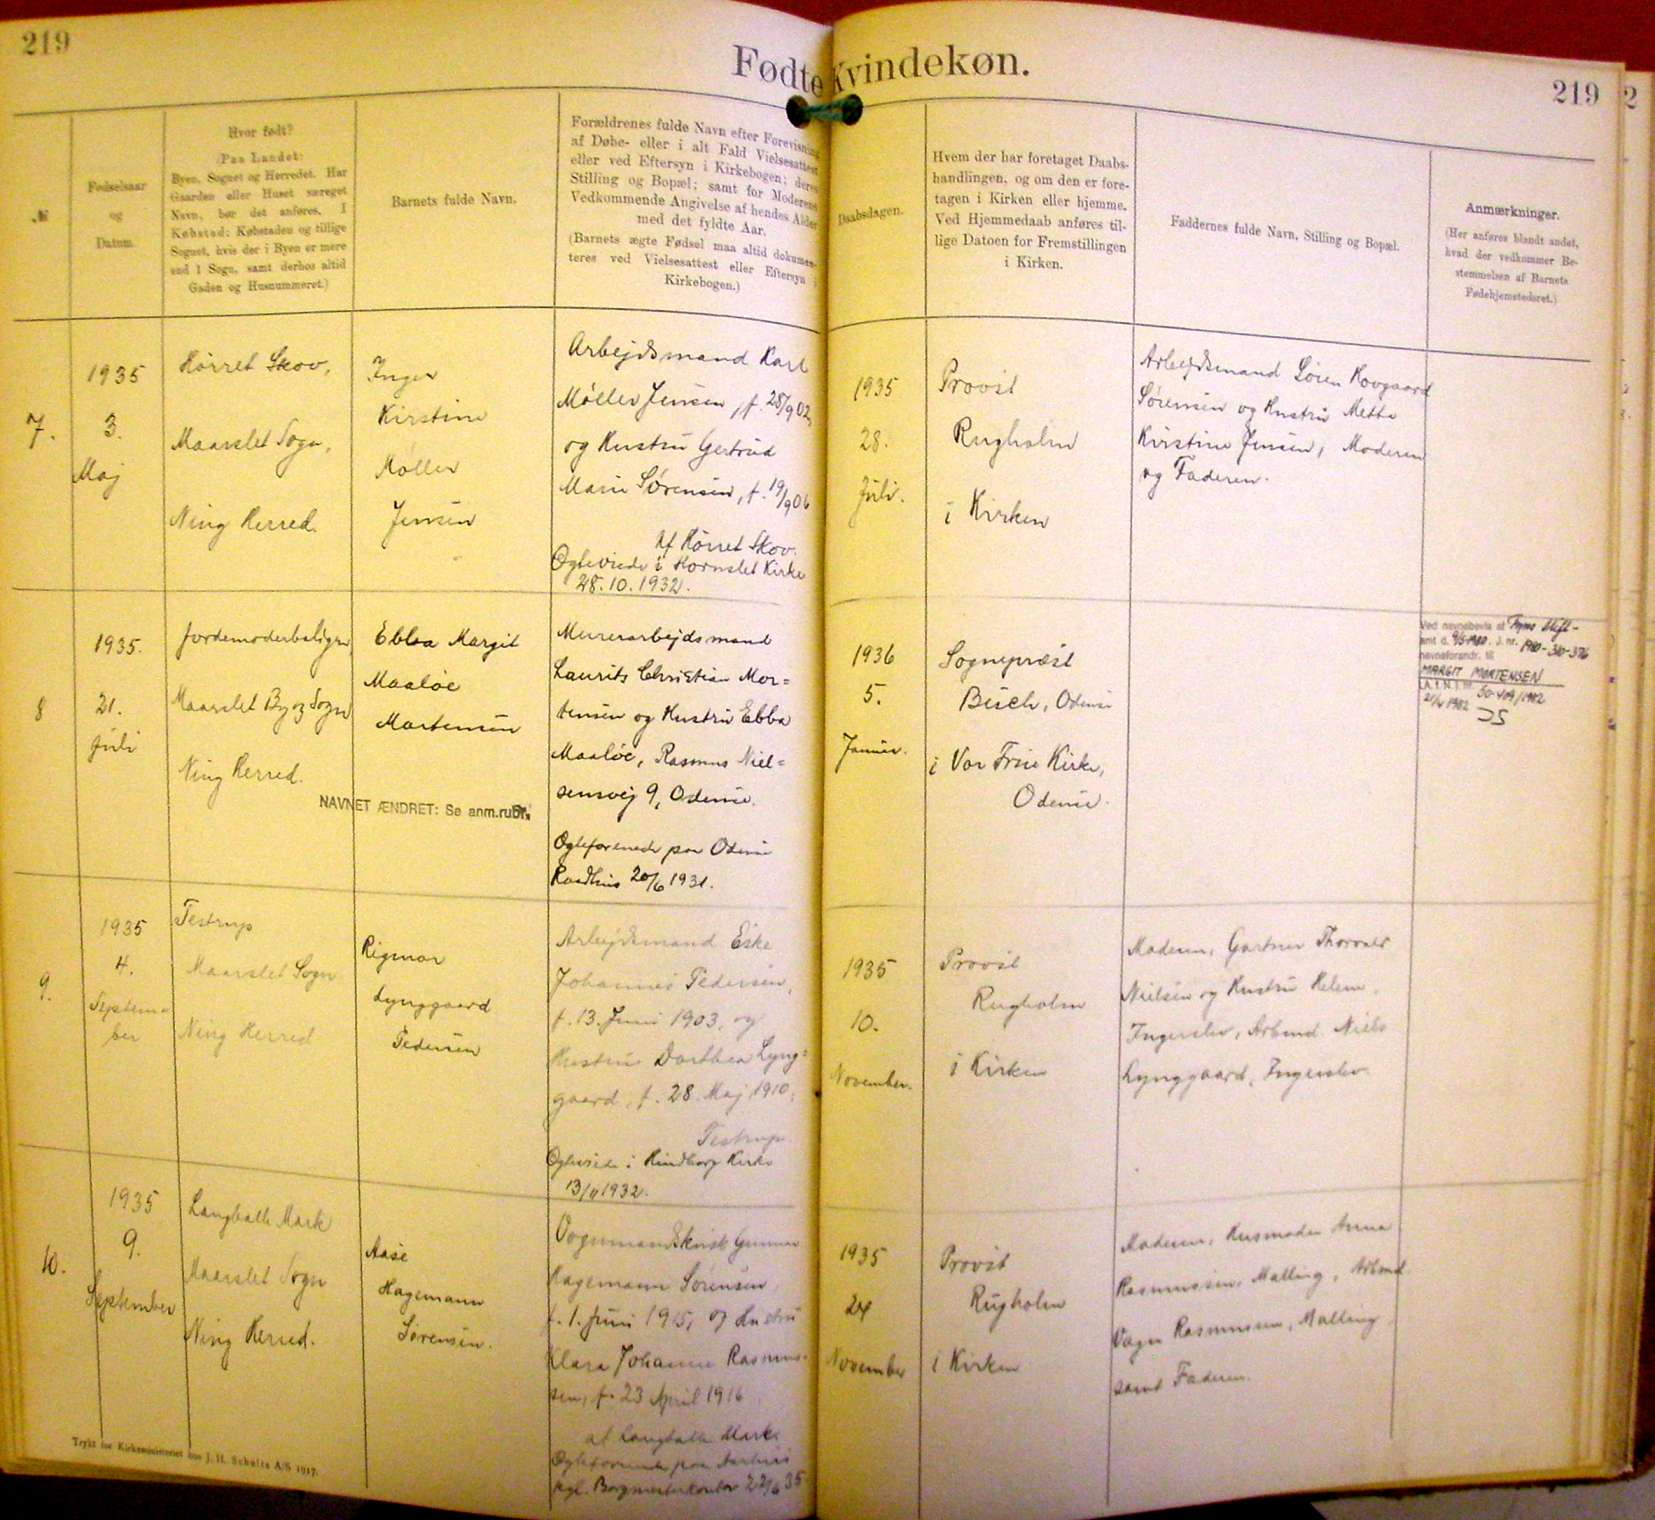 219
Fødte Kvindekøn.
219
2
№
Fødselsaar
og
Datum.
Hvor født?
(Paa Landet:
Byen, Sognet og Herredet. Har
Gaarden eller Huset særeget
Navn, bør det anføres. I
Købstad: Købstaden og tillige
Sognet, hvis der i Byen er mere
end 1 Sogn, samt derhos altid
Gaden og Husnummeret.)
Barnets fulde Navn.
Forældrenes fulde Navn efter Forevisning
af Døbe- eller i alt Fald Vielsesattest
eller ved Eftersyn i Kirkebogen; deres
Stilling og Bopæl; samt for Moderens
Vedkommende Angivelse af hendes Alder
med det fyldte Aar.
(Barnets ægte Fødsel maa altid dokumen-
teres ved Vielsesattest eller Eftersyn i
Kirkebogen.)
Daabsdagen.
Hvem der har foretaget Daabs-
handlingen, og om den er fore-
tagen i Kirken eller hjemme.
Ved Hjemmedaab anføres til-
lige Datoen for Fremstillingen
i Kirken.
Faddernes fulde Navn, Stilling og Bopæl.
Anmærkninger.
(Her anføres blandt andet,
hvad der vedkommer Be-
stemmelsen af Barnets
Fødehjemstedsret.)
7.
1935
3.
Maj
Hørret Skov,
Maarslet Sogn,
Ning Herred.
Inger
Kirstine
Møller
Jensen
Arbejdsmand Karl
Møller Jensen, f. 28/9 02
og Hustru Gertrud
Marie Sørensen, f. 19/9 06
Af Hørret Skov.
Ægteviede i Hornslet Kirke
28.10.1932.
1935
28.
Juli.
Provst
Rugholm
i Kirken
Arbejdsmand Søren Kovgaard
Sørensen og Hustru Mette
Kirstine Jensen, Moderen
og Faderen.
8
1935.
21.
Juli
Jordemoderboligen
Maarslet By og Sogn
Ning Herred.
Ebba Margit
Maaløe
Mortensen
NAVNET ÆNDRET: Se anm.rubr.
Murerarbejdsmand
Laurits Christian Mor=
tensen og Hustru Ebba
Maaløe, Rasmus Niel=
sensvej 9, Odense.
Ægteforenede paa Odense
Raadhus 20/6 1931.
1936
5.
Januar.
Sognepræst
Bisch, Odense
i Vor Frue Kirke,
Odense.
Ved navnebevis af Fyns Stift-
amt d. 9/5-1980. J. nr. 1980-310-376
navneforandr. til
MARGIT MORTENSEN
21/4 1982
9.
1935
4.
Septem=
ber
Testrup
Maarslet Sogn
Ning Herred
Rigmor
Lynggaard
Pedersen
Arbejdsmand Eske
Johannes Pedersen,
f. 13. Juni 1903, og
Hustru Dorthea Lyng=
gaard, f. 28. Maj 1910,
Testrup
Ægteviede i Hindborg Kirke
13/11 1932.
1935
10.
November.
Provst
Rugholm
i Kirken
Moderen, Gartner Thorvald
Nielsen og Hustru Helene,
Ingerslev, Arbmd. Niels
Lynggaard, Ingerslev.
10.
1935
9.
September
Langballe Mark
Maarslet Sogn
Ning Herred.
Aase
Hagemann
Sørensen.
Vognmandskusk Gunnar
Hagemann Sørensen,
f. 1. Juni 1915, og Hustru
Klara Johanne Rasmus-
sen, f. 23 April 1916
af Langballe Mark.
Ægteforenede paa Aarhus
kgl. Borgmesterkontor 22/6 35
1935
24
November
Provst
Rugholm
i Kirken
Moderen, Husmoder Anna
Rasmussen, Malling, Arbmd.
Vagn Rasmussen, Malling,
samt Faderen.
Trykt for Kirkeministeriet hos J. H. Schultz A/S 1917.